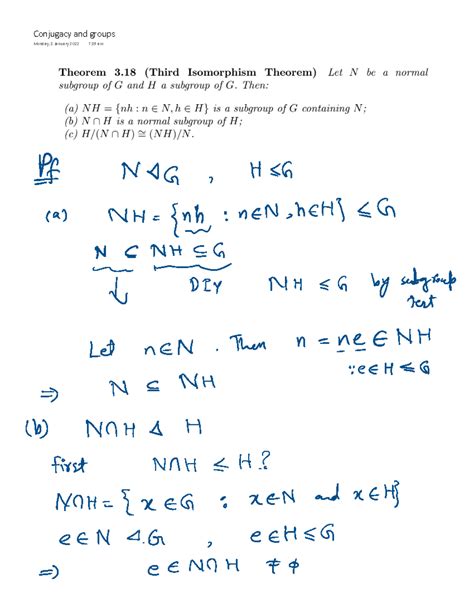 Conjugacy and groups
Theorem 3.18 (Third Isomorphism Theorem) Let N be a normal
subgroup of G and H a subgroup of G. Then:
(a) NH = {nh : n ∈ N, h ∈ H} is a subgroup of G containing N;
(b) N ∩ H is a normal subgroup of H;
(c) H/(N ∩ H) ≅ (NH)/N.
Pf N ⊲ G , H ≤ G
(a) NH = {nh : n∈N, h∈H} ≤ G
N ⊂ NH ⊆ G
↓ DIY NH ≤ G by subgroup
test
Let n∈N. Then n = ne ∈ NH
∵ e∈H ≤ G
⇒ N ⊆ NH
(b) N∩H ⊲ H
first N∩H ≤ H?
N∩H = {x∈G : x∈N and x∈H}
e∈N ⊲ G , e∈H ≤ G
⇒ e ∈ N∩H ≠ ϕ